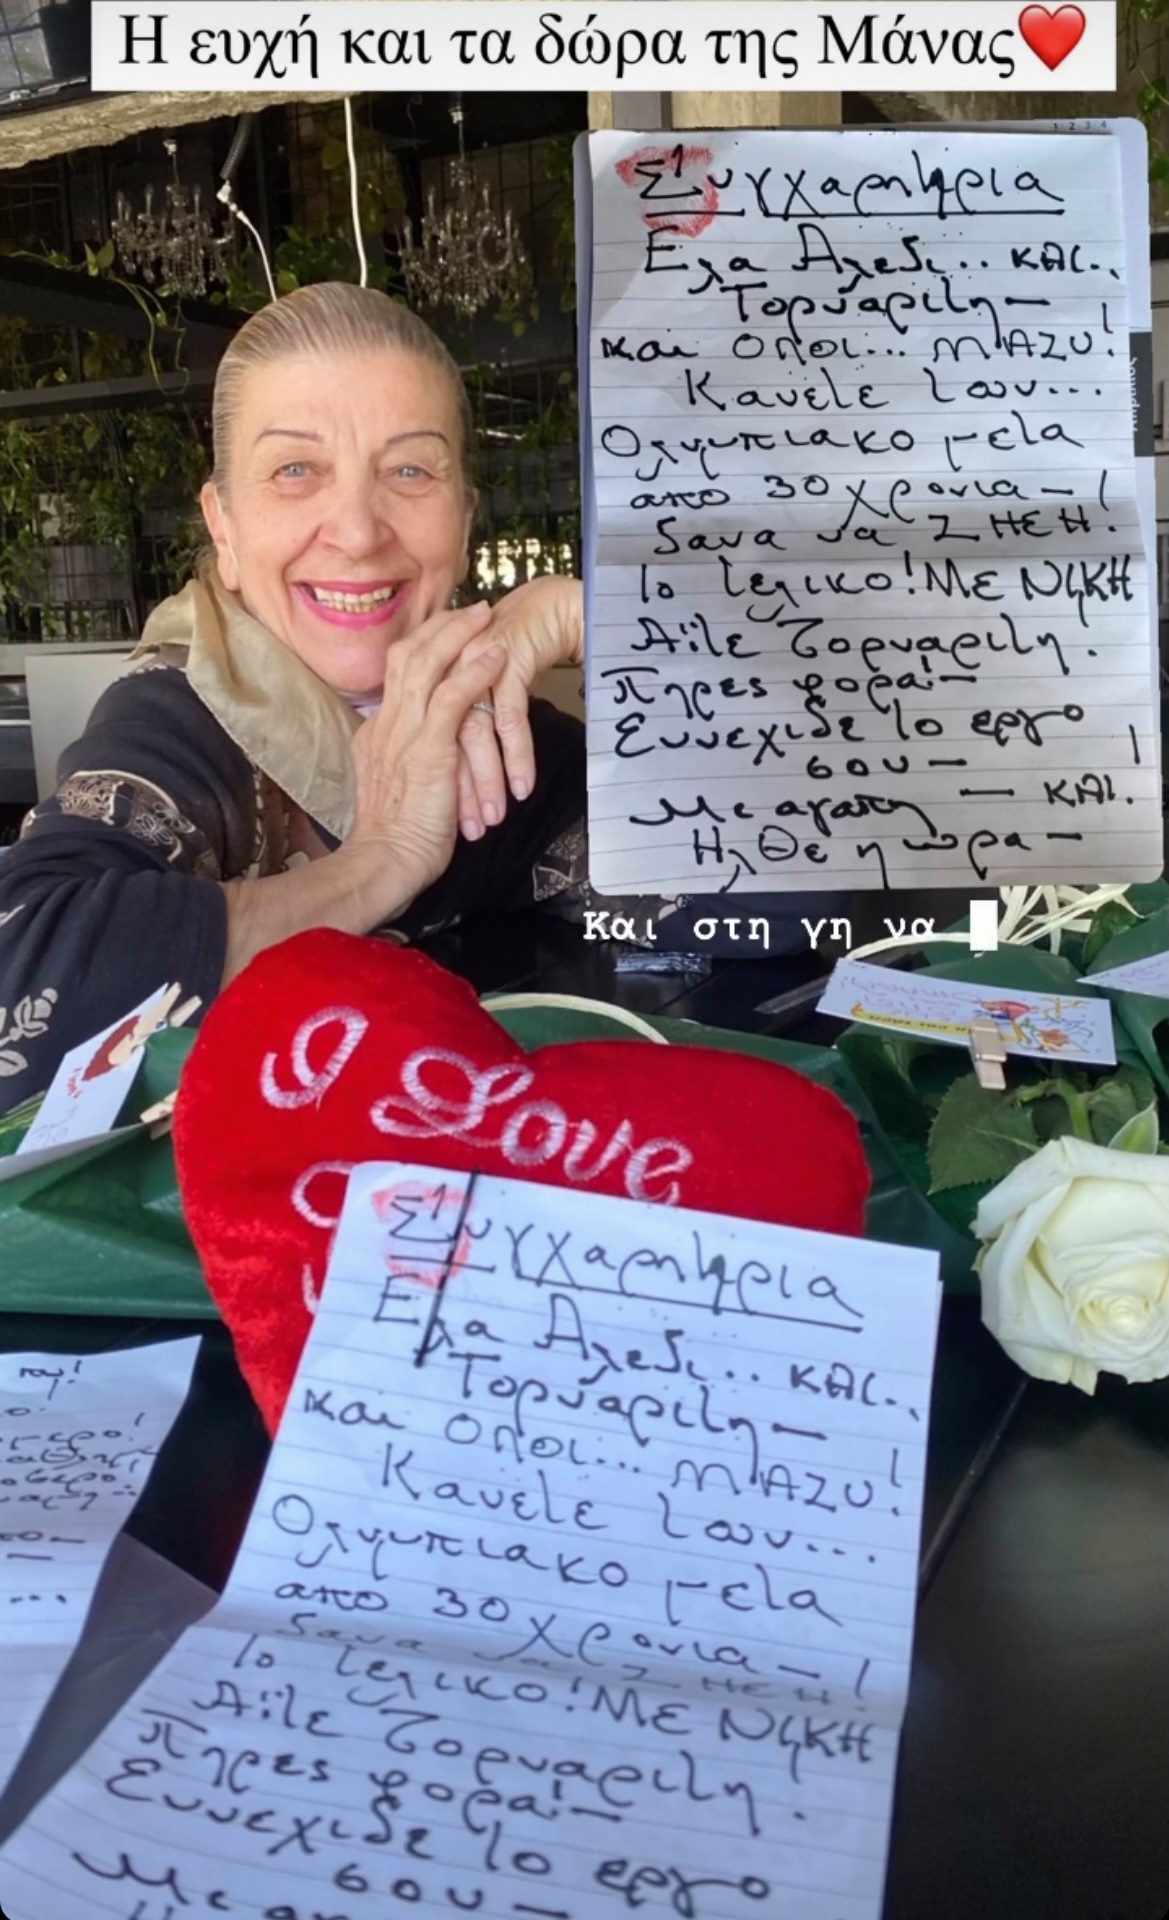 Η ευχή και τα δώρα της Μάνας❤️
Συγχαρητήρια
Ελα Αλεξι.. ΚΑΙ..
Τορναρίτη —
και ολοι... ΜΑΖΥ!
Κανετε τον...
Ολυμπιακο μετα
απο 30 χρονια — !
ξανα να ΖΗΣΗ!
το τελικο! ΜΕ ΝΙΚΗ
Αϊτε Τορναριτη!
Πηρες φορα! —
Συνεχισε το εργο
σου — !
Με αγαπη — ΚΑΙ.
Ηλθε η ωρα —
Και στη γη να
I Love
Συγχαρητήρια
Ελα Αλεξι.. ΚΑΙ..
Τορναρίτη —
και ολοι... ΜΑΖΥ!
Κανετε τον...
Ολυμπιακο μετα
απο 30 χρονια — !
ξανα να ΖΗΣΗ!
το τελικο! ΜΕ ΝΙΚΗ
Αϊτε Τορναριτη!
Πηρες φορα! —
Συνεχισε το εργο
σου —
Με αγ